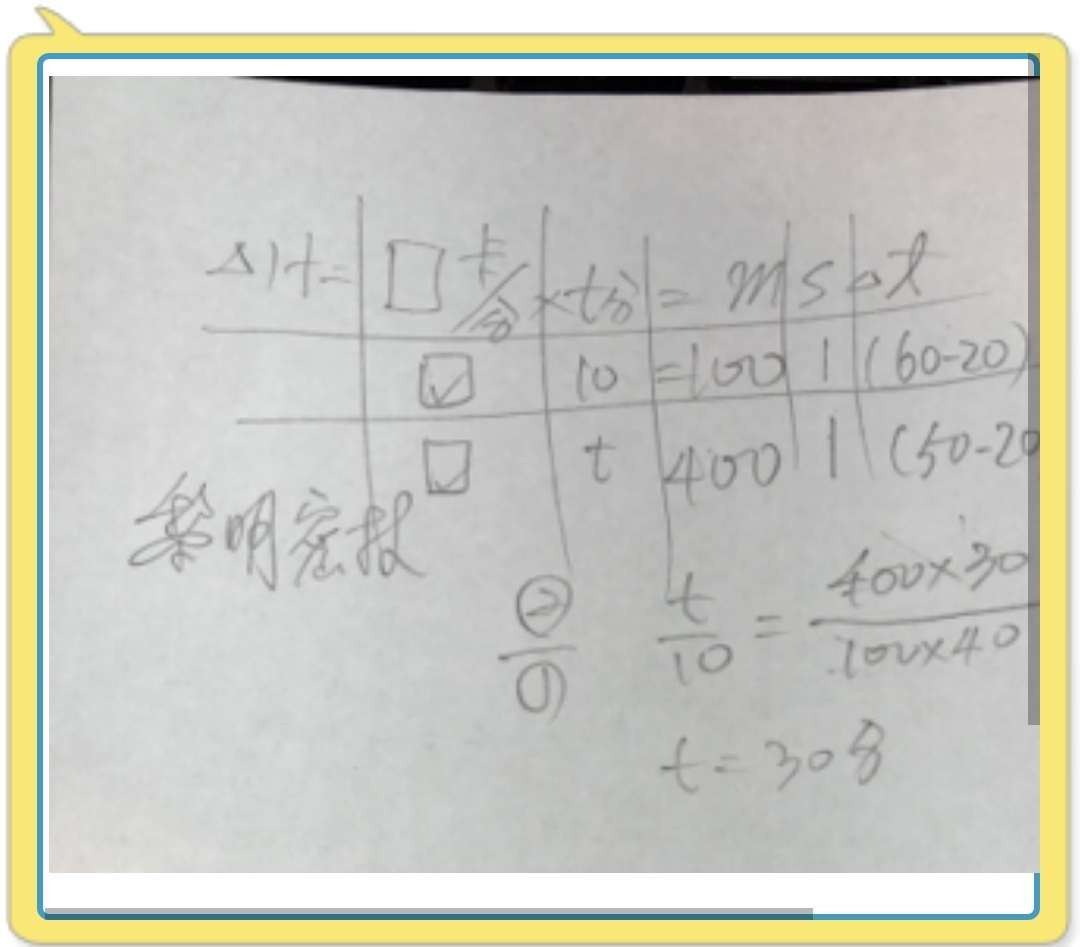 △H= □ 卡/分 × t分 = m s △t
☑ 10 =100 1 (60-20)
☑ t 400 1 (50-20
黎明密技
②/① t/10 = 400×30/100×40
t=30分